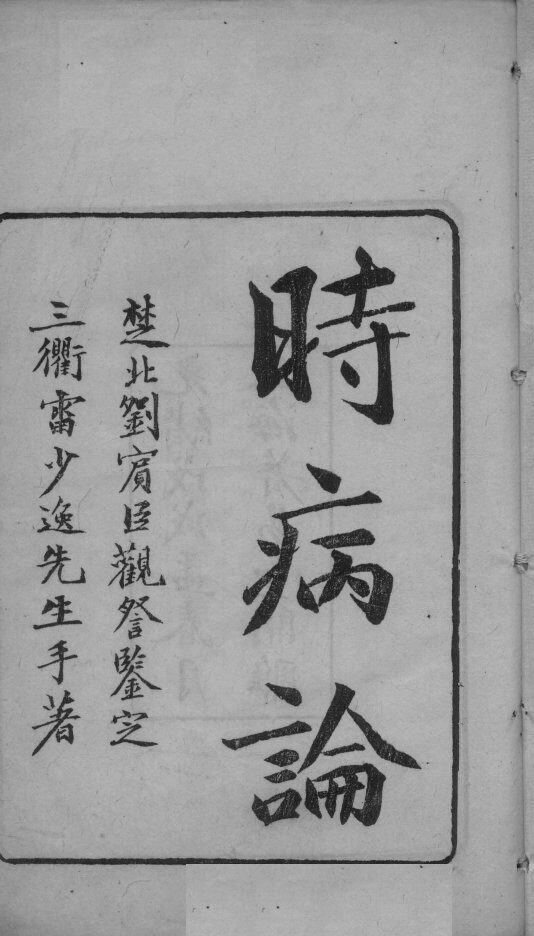 時病論
楚北劉賓臣觀詧鑒定
三衢雷少逸先生手著